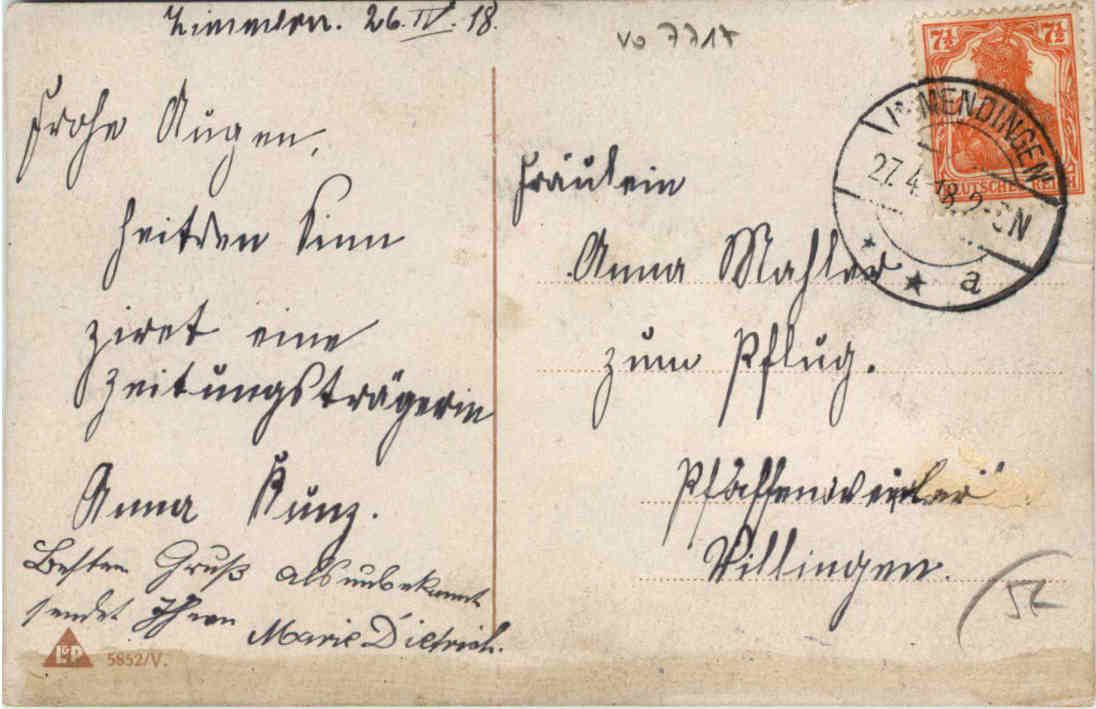 Zimmern. 26.IV.18.
Vo 7717
Frohe Augen,
heitren Sinn
ziret eine
Zeitungsträgerin
Anna Kunz.
Besten Gruß als unbekannt
sendet Ihnen
Marie Dietrich.
L&P 5852/V.
7½ 7½
DEUTSCHES REICH
IMMENDINGEN
27.4.18. 2-3N
a
Fräulein
Anna Mahler
zum Pflug.
Pfaffenweiler
Villingen.